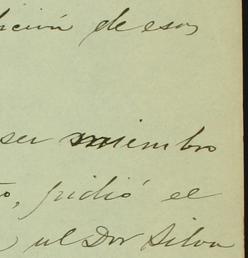 ición de esos
ser miembro
to, pidió el
el Dor Silva